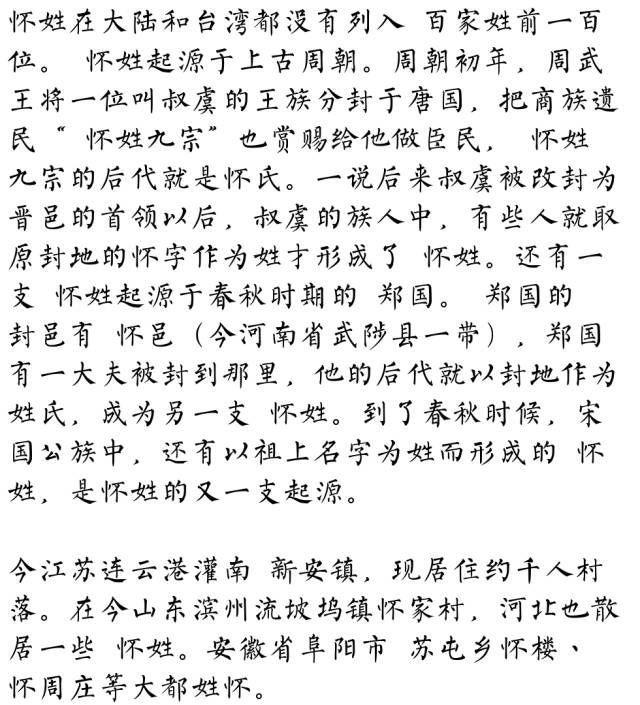 怀姓在大陆和台湾都没有列入 百家姓前一百
位。 怀姓起源于上古周朝。周朝初年，周武
王将一位叫叔虞的王族分封于唐国，把商族遗
民“ 怀姓九宗”也赏赐给他做臣民， 怀姓
九宗的后代就是怀氏。一说后来叔虞被改封为
晋邑的首领以后，叔虞的族人中，有些人就取
原封地的怀字作为姓才形成了 怀姓。还有一
支 怀姓起源于春秋时期的 郑国。 郑国的
封邑有 怀邑（今河南省武陟县一带），郑国
有一大夫被封到那里，他的后代就以封地作为
姓氏，成为另一支 怀姓。到了春秋时候，宋
国公族中，还有以祖上名字为姓而形成的 怀
姓，是怀姓的又一支起源。

今江苏连云港灌南 新安镇，现居住约千人村
落。在今山东滨州流坡坞镇怀家村，河北也散
居一些 怀姓。安徽省阜阳市 苏屯乡怀楼、
怀周庄等大都姓怀。